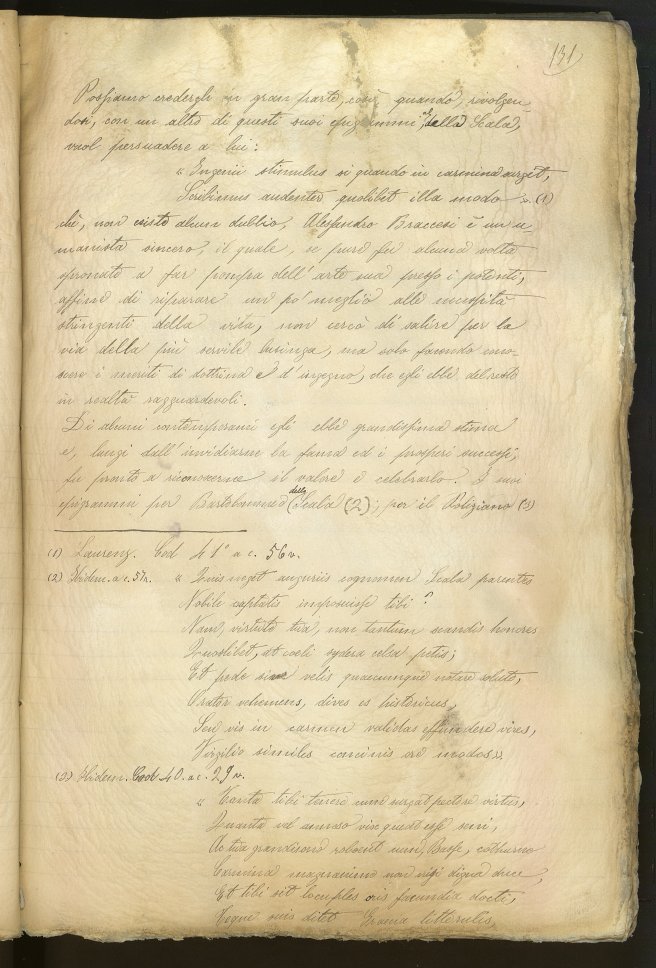 131
Possiamo credergli in gran parte, così, quando, rivolgen
dosi, con un altro di questi suoi epigrammi, della Scala,
vuol persuadere a lui:
" Ingenii stimulus si quando in carmina urget,
Scribimus audenter quolibet illa modo ". (1)
chè, non esiste alcun dubbio, Alessandro Braccesi è un u
manista sincero, il quale, se pure fu alcuna volta
spronato a far pompa dell'arte sua presso i potenti,
affine di riparare un po' meglio alle necessità
stringenti della vita, non cercò di salire per la
via della più servile lusinga, ma solo facendo cono-
scere i meriti di dottrina e d'ingegno, che egli ebbe del resto
in realtà ragguardevoli.
Di alcuni contemporanei egli ebbe grandissima stima
e, lungi dall'invidiarne la fama ed i prosperi successi,
fu pronto a riconoscerne il valore e celebrarlo. I suoi
epigrammi per Bartolommeo della Scala (2), per il Poliziano (3)
(1) Laurenz. Cod 41° a c. 56v.
(2) Ibidem. a c. 57r. " Quis neget auguriis cognomen Scala parentes
Nobile captatis imposuisse tibi?
Nam, virtute tua, non tantum scandis honores
Quoslibet, at coeli sydera celsa petis;
Et pede sive velis quaecumque notare soluto,
Orator vehemens, dives es historicus,
Seu vis in carmen validas effundere vires,
Virgilio similes concinis ore modos "
(3) Ibidem. Cod 40. a c. 29v.
" Tanta tibi tenero cum surgat pectore virtus,
Quanta vel annoso vix queat esse seni,
Ac tua grandisono reboent cum, Basse, cothurno
Carmina magnanimo non nisi digna duce,
Et tibi sit locuples oris facundia docti,
Teque suis ditet Graecia litterulis,